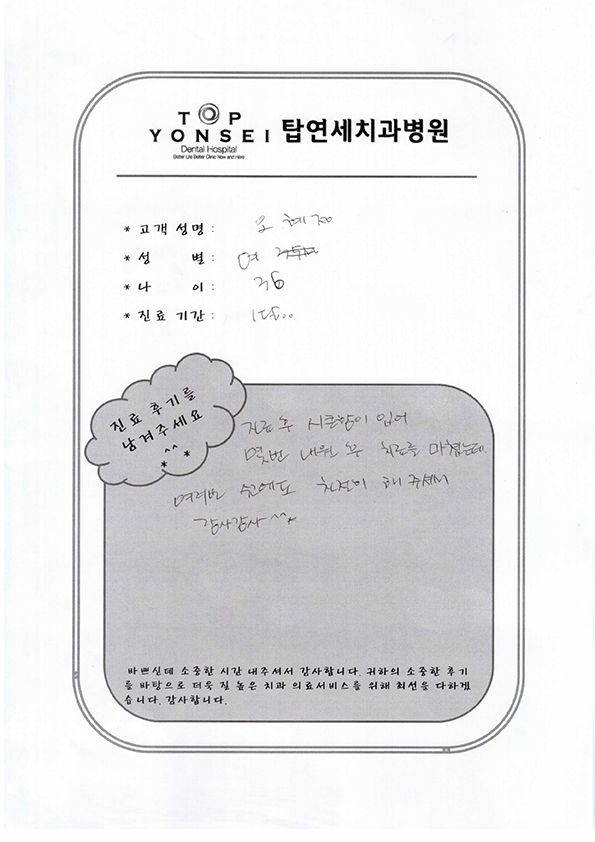 TOP
YONSEI 탑연세치과병원
Dental Hospital
Better Life Better Clinic Now and Here
* 고객 성명 : 오혜정
* 성 별 : 여
* 나 이 : 36
* 진료 기간 :
진료 후기를
남겨주세요
^^
* *
진료 후 시큰함이 있어
몇번 내원 후 치료를 마쳤는데.
여러번 수고에도 친절히 해 주셔서
감사감사 ^^
바쁘신데 소중한 시간 내주셔서 감사합니다. 귀하의 소중한 후기
를 바탕으로 더욱 질 높은 치과 의료서비스를 위해 최선을 다하겠
습니다. 감사합니다.